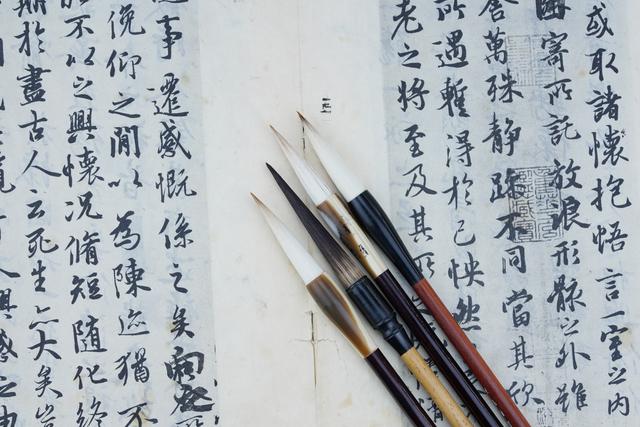 或取諸懷抱悟言一室之內
因寄所託放浪形骸之外雖
舍萬殊靜躁不同當其欣
所遇暫得於己怏然
老之將至及其所
事遷感慨係之矣向
俛仰之間以為陳迹猶不
不以之興懷況脩短隨化終
期於盡古人云死生亦大矣豈
覽
人興感之由